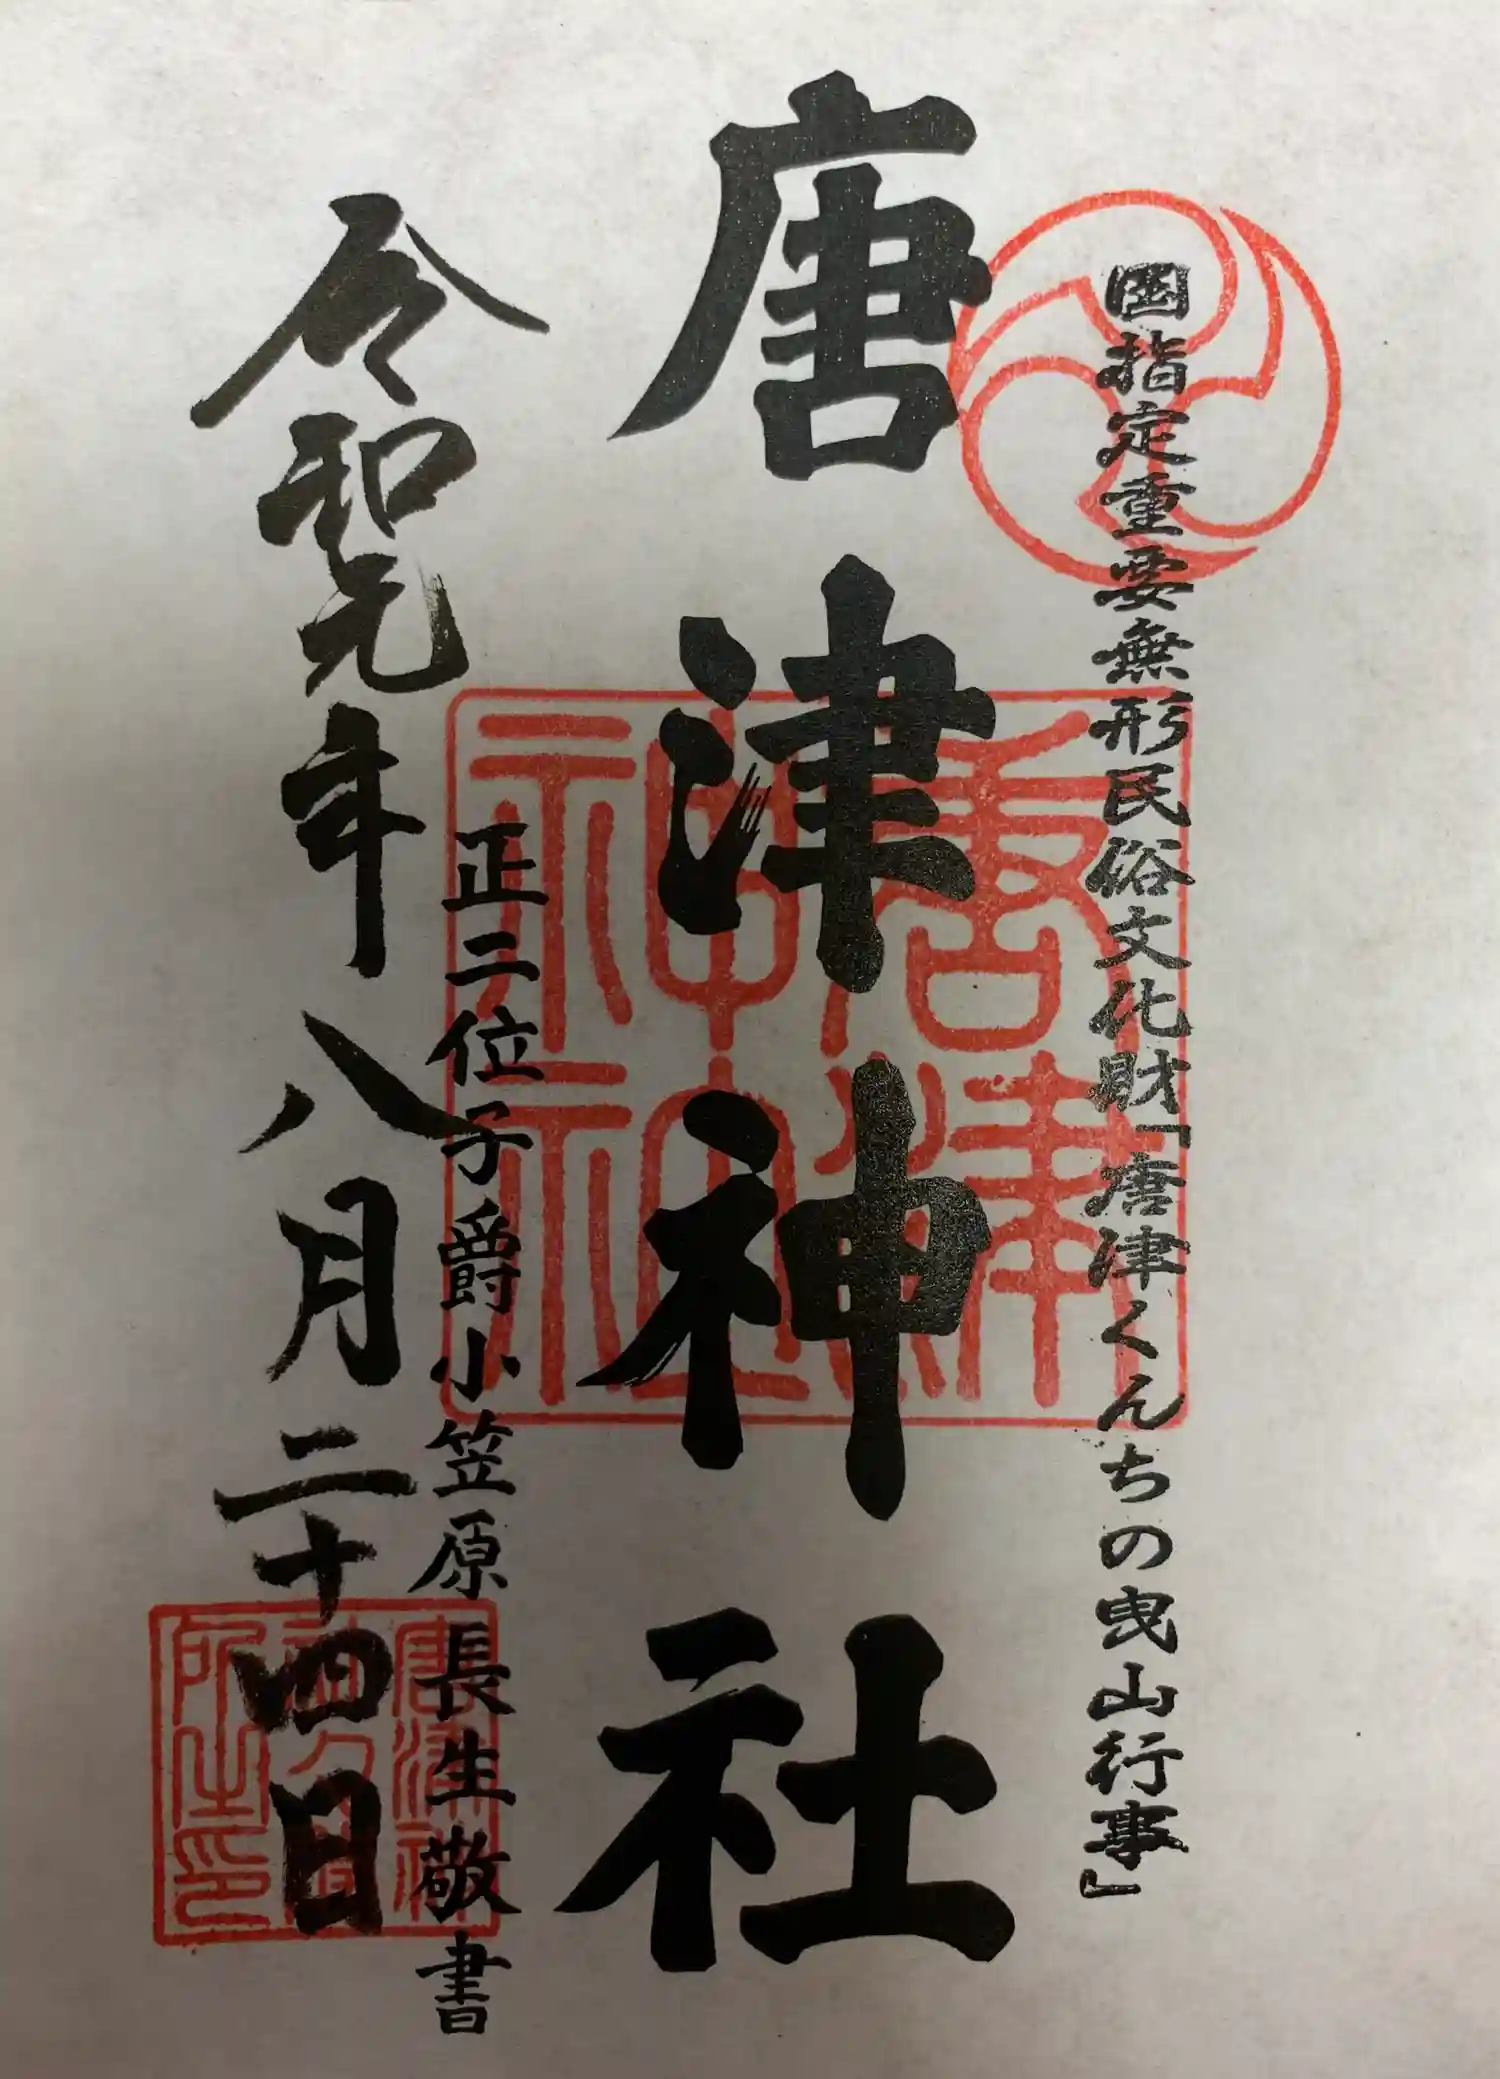 国指定重要無形民俗文化財「唐津くんちの曳山行事」
唐津神社
唐津神社
正二位子爵小笠原長生敬書
令和元年八月二十四日